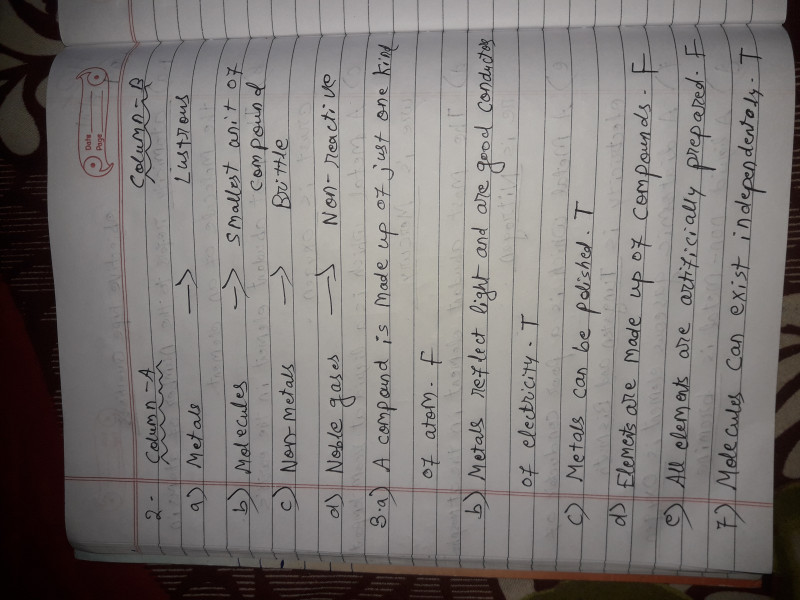 Date
Page
2. Column-A Column-B
a) Metals → Lustrous
b) Molecules → Smallest unit of
compound
c) Non-metals → Brittle
d) Noble gases → Non-reactive
3.a) A compound is made up of just one kind
of atom. F
b) Metals reflect light and are good conductor
of electricity. T
c) Metals can be polished. T
d) Elements are made up of compounds. F
e) All elements are artificially prepared. F
7) Molecules can exist independently. T